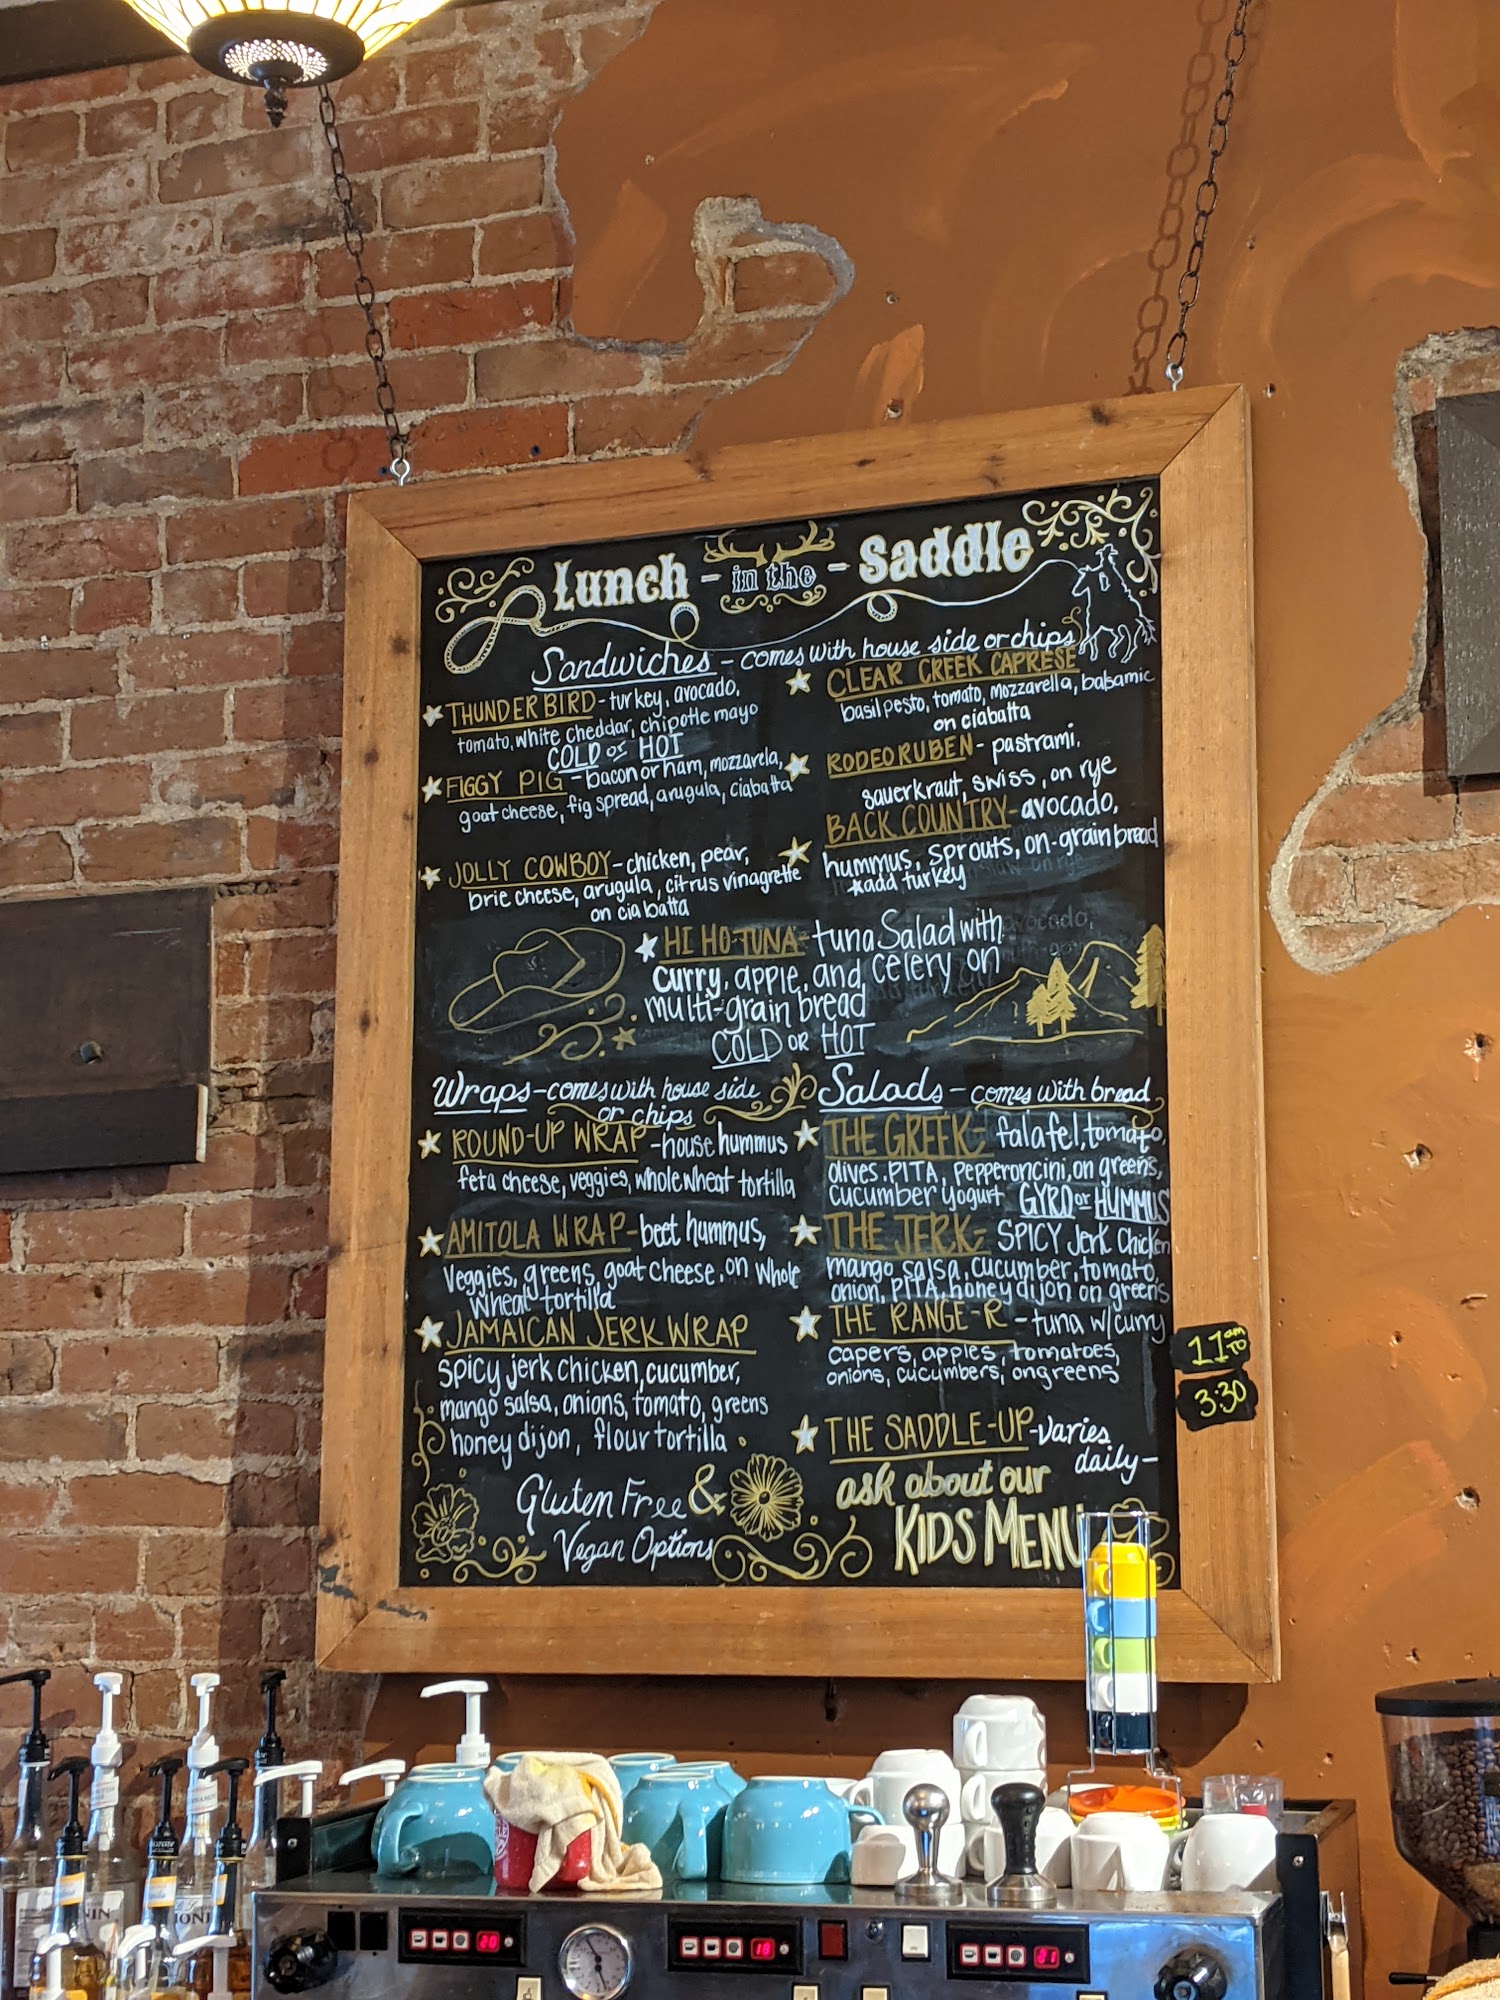 Lunch - in the - Saddle
Sandwiches - comes with house side or chips
THUNDERBIRD - turkey, avocado,
tomato, white cheddar, chipotle mayo
COLD or HOT
FIGGY PIG - bacon or ham, mozzarela,
goat cheese, fig spread, arugula, ciabatta
JOLLY COWBOY - chicken, pear,
brie cheese, arugula, citrus vinagrette
on ciabatta
CLEAR CREEK CAPRESE
basil pesto, tomato, mozzarella, balsamic
on ciabatta
RODEO RUBEN - pastrami,
sauerkraut, swiss, on rye
BACK COUNTRY - avocado,
hummus, sprouts, on-grain bread
add turkey
HI HO TUNA - tuna Salad with
curry, apple, and celery on
multi-grain bread
COLD OR HOT
Wraps - comes with house side
or chips
ROUND-UP WRAP - house hummus
feta cheese, veggies, whole wheat tortilla
AMITOLA WRAP - beet hummus,
Veggies, greens, goat cheese, on whole
wheat tortilla
JAMAICAN JERK WRAP
spicy jerk chicken, cucumber,
mango salsa, onions, tomato, greens
honey dijon, flour tortilla
Gluten Free &
Vegan Options
Salads - comes with bread
THE GREEK - falafel, tomato,
olives, PITA, pepperoncini, on greens,
cucumber yogurt GYRO or HUMMUS
THE JERK - SPICY Jerk Chicken
mango salsa, cucumber, tomato,
onion, PITA, honey dijon on greens
THE RANGE-R - tuna w/curry
capers, apples, tomatoes,
onions, cucumbers, on greens
THE SADDLE-UP - varies
daily -
ask about our
KIDS MENU
11 am TO
3:30
20
18
21